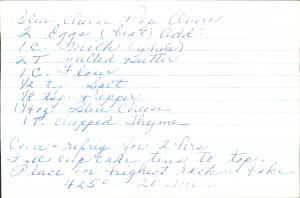 Blue Cheese Pop Overs
2 Eggs (beat) Add:
1 C. Milk (whole)
2 T melted Butter
1 C. Flour
1/2 tsp. Salt
1/8 tsp. Pepper
1 1/4 oz. Blue Cheese
1 T. Chopped Thyme
Cover & refrig for 2 hrs
Fill cup cake tins to top.
Place on highest rack & bake
425° 20 min.